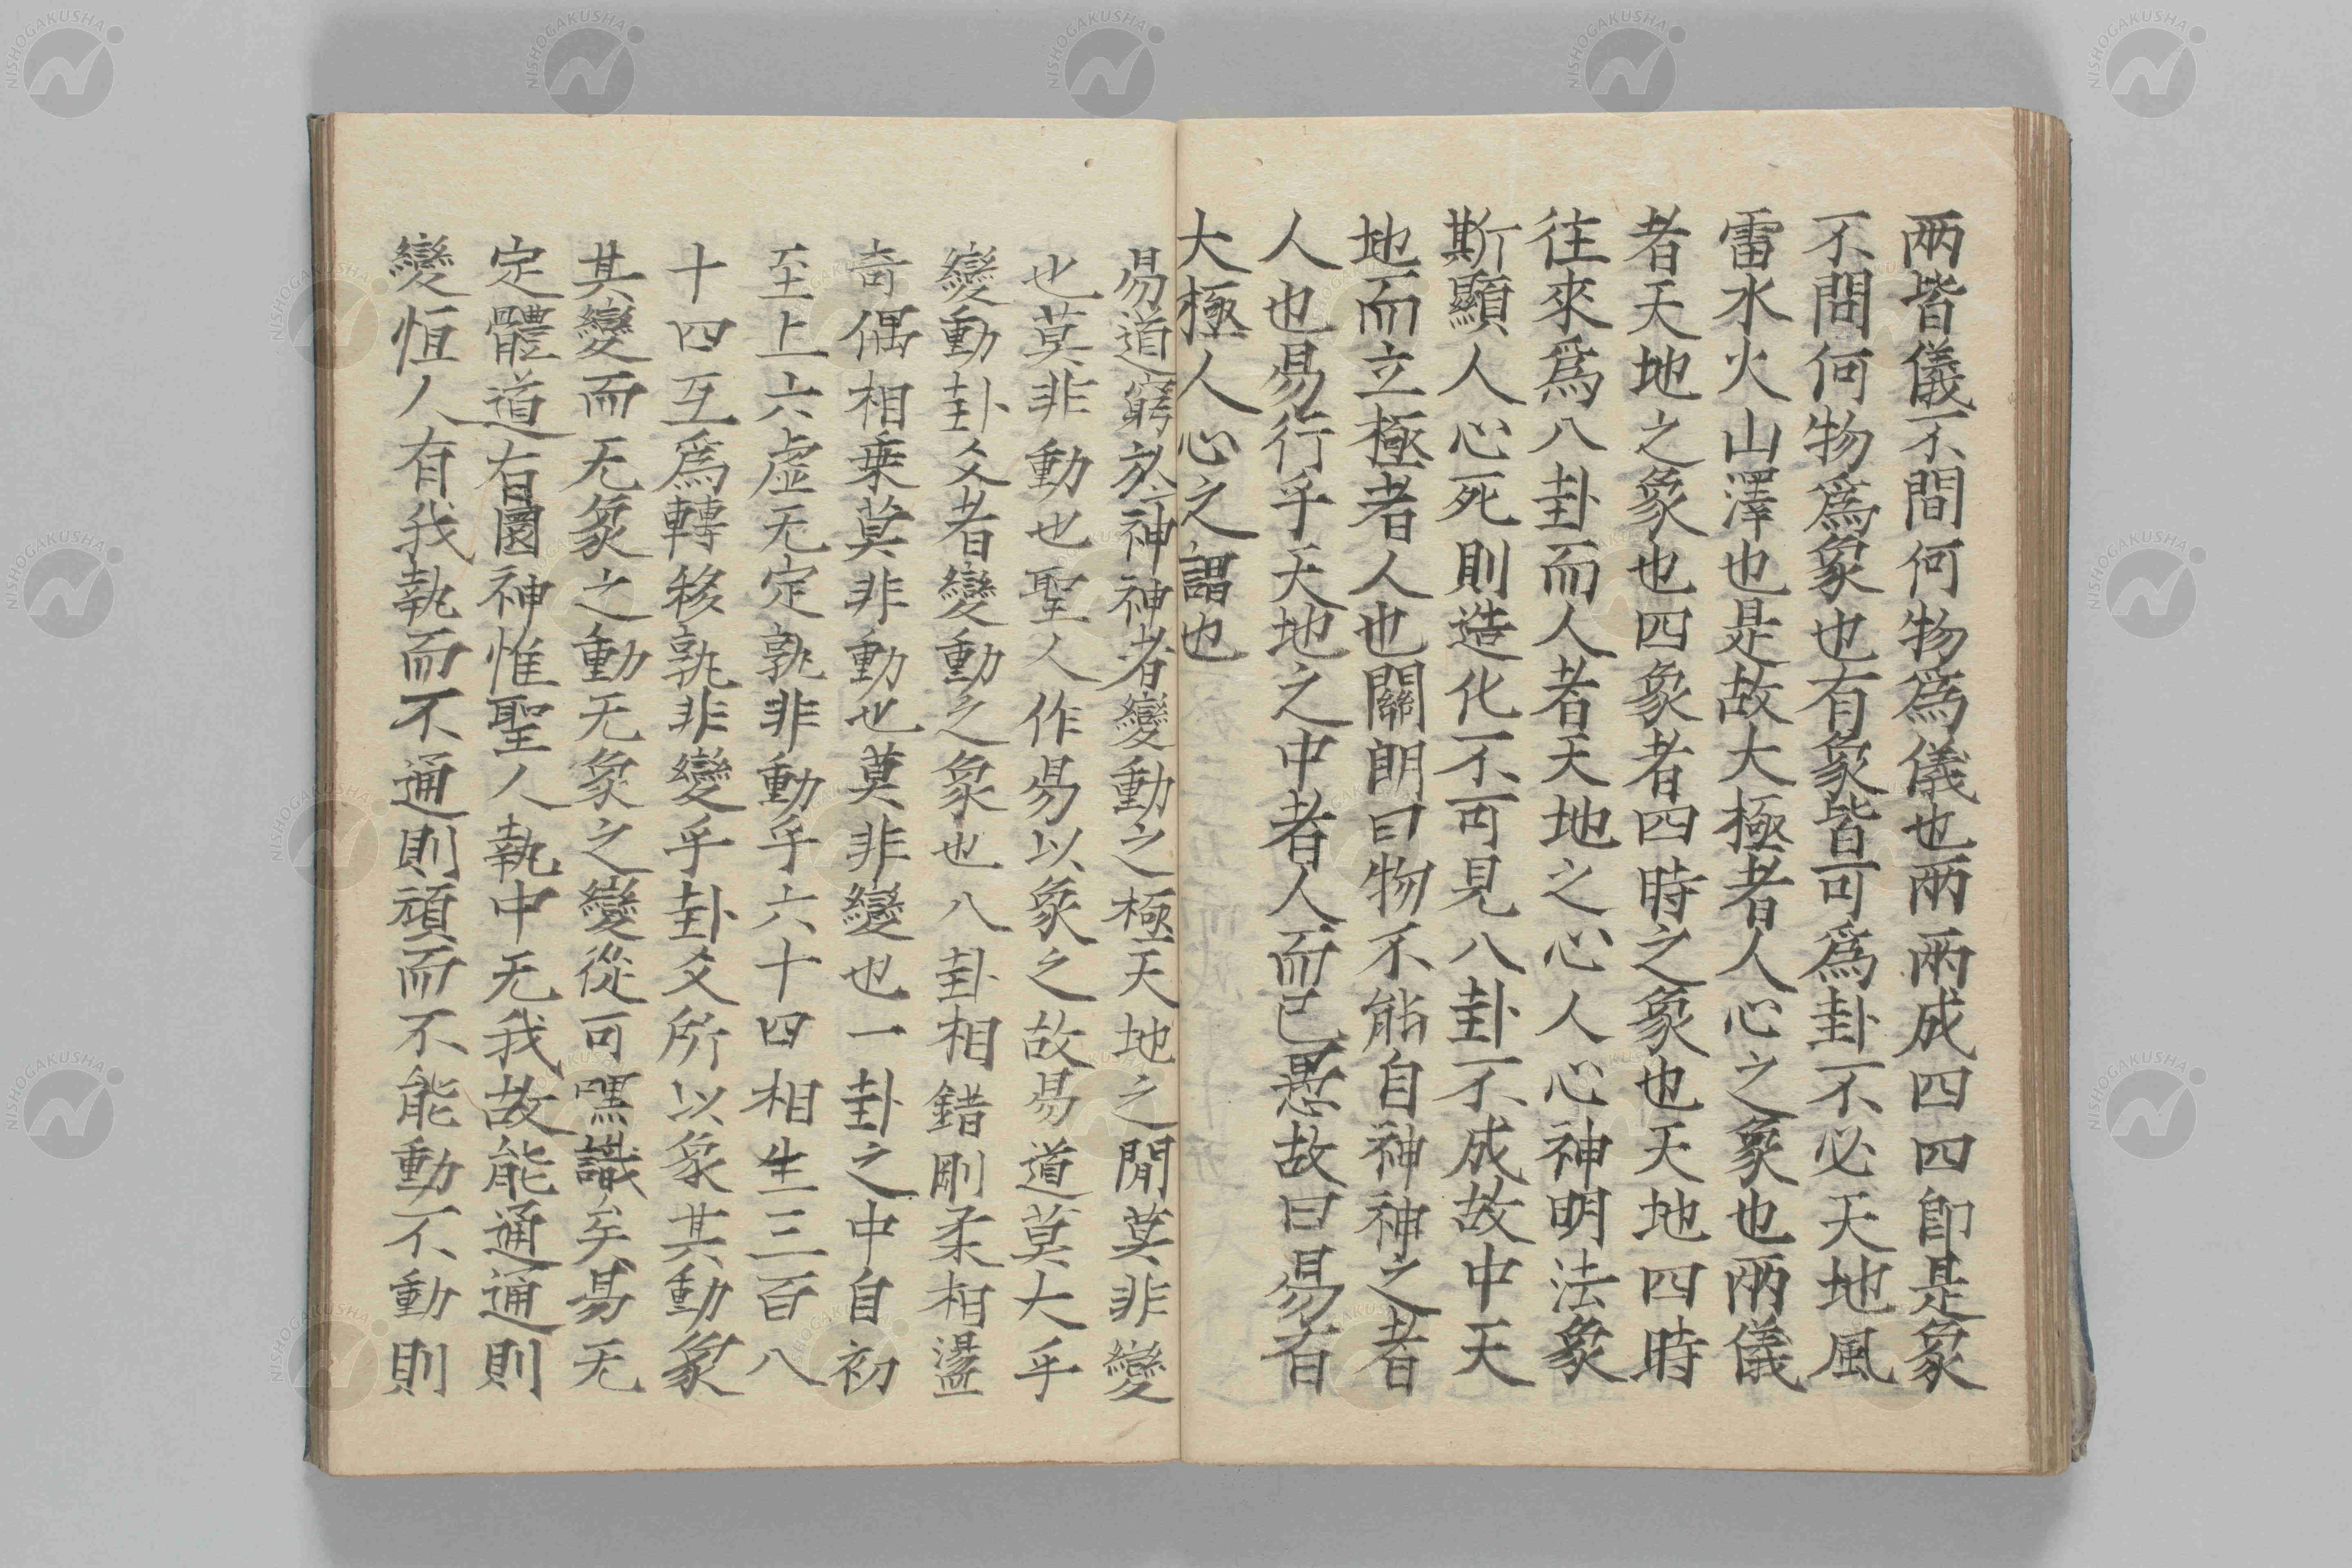 兩皆儀不問何物爲儀也兩兩成四四卽是象
不問何物爲象也有象皆可爲卦不必天地風
雷水火山澤也是故大極者人心之象也兩儀
者天地之象也四象者四時之象也天地四時
往來爲八卦而人者天地之心人心神明法象
斯顯人心死則造化不可見八卦不成故中天
地而立極者人也關朗曰物不能自神神之者
人也易行乎天地之中者人而已愚故曰易有
大極人心之謂也
易道窮於神神者變動之極天地之閒莫非變
也莫非動也聖人作易以象之故易道莫大乎
變動卦爻者變動之象也八卦相錯剛柔相盪
奇偶相乗莫非動也莫非變也一卦之中自初
至上六虛无定孰非動乎六十四相生三百八
十四互爲轉移孰非變乎卦爻所以象其動象
其變而无象之動无象之變從可嘿識矣易无
定體道有圜神惟聖人執中无我故能通通則
變恒人有我執而不通則頑而不能動不動則
NISHOGAKUSHA